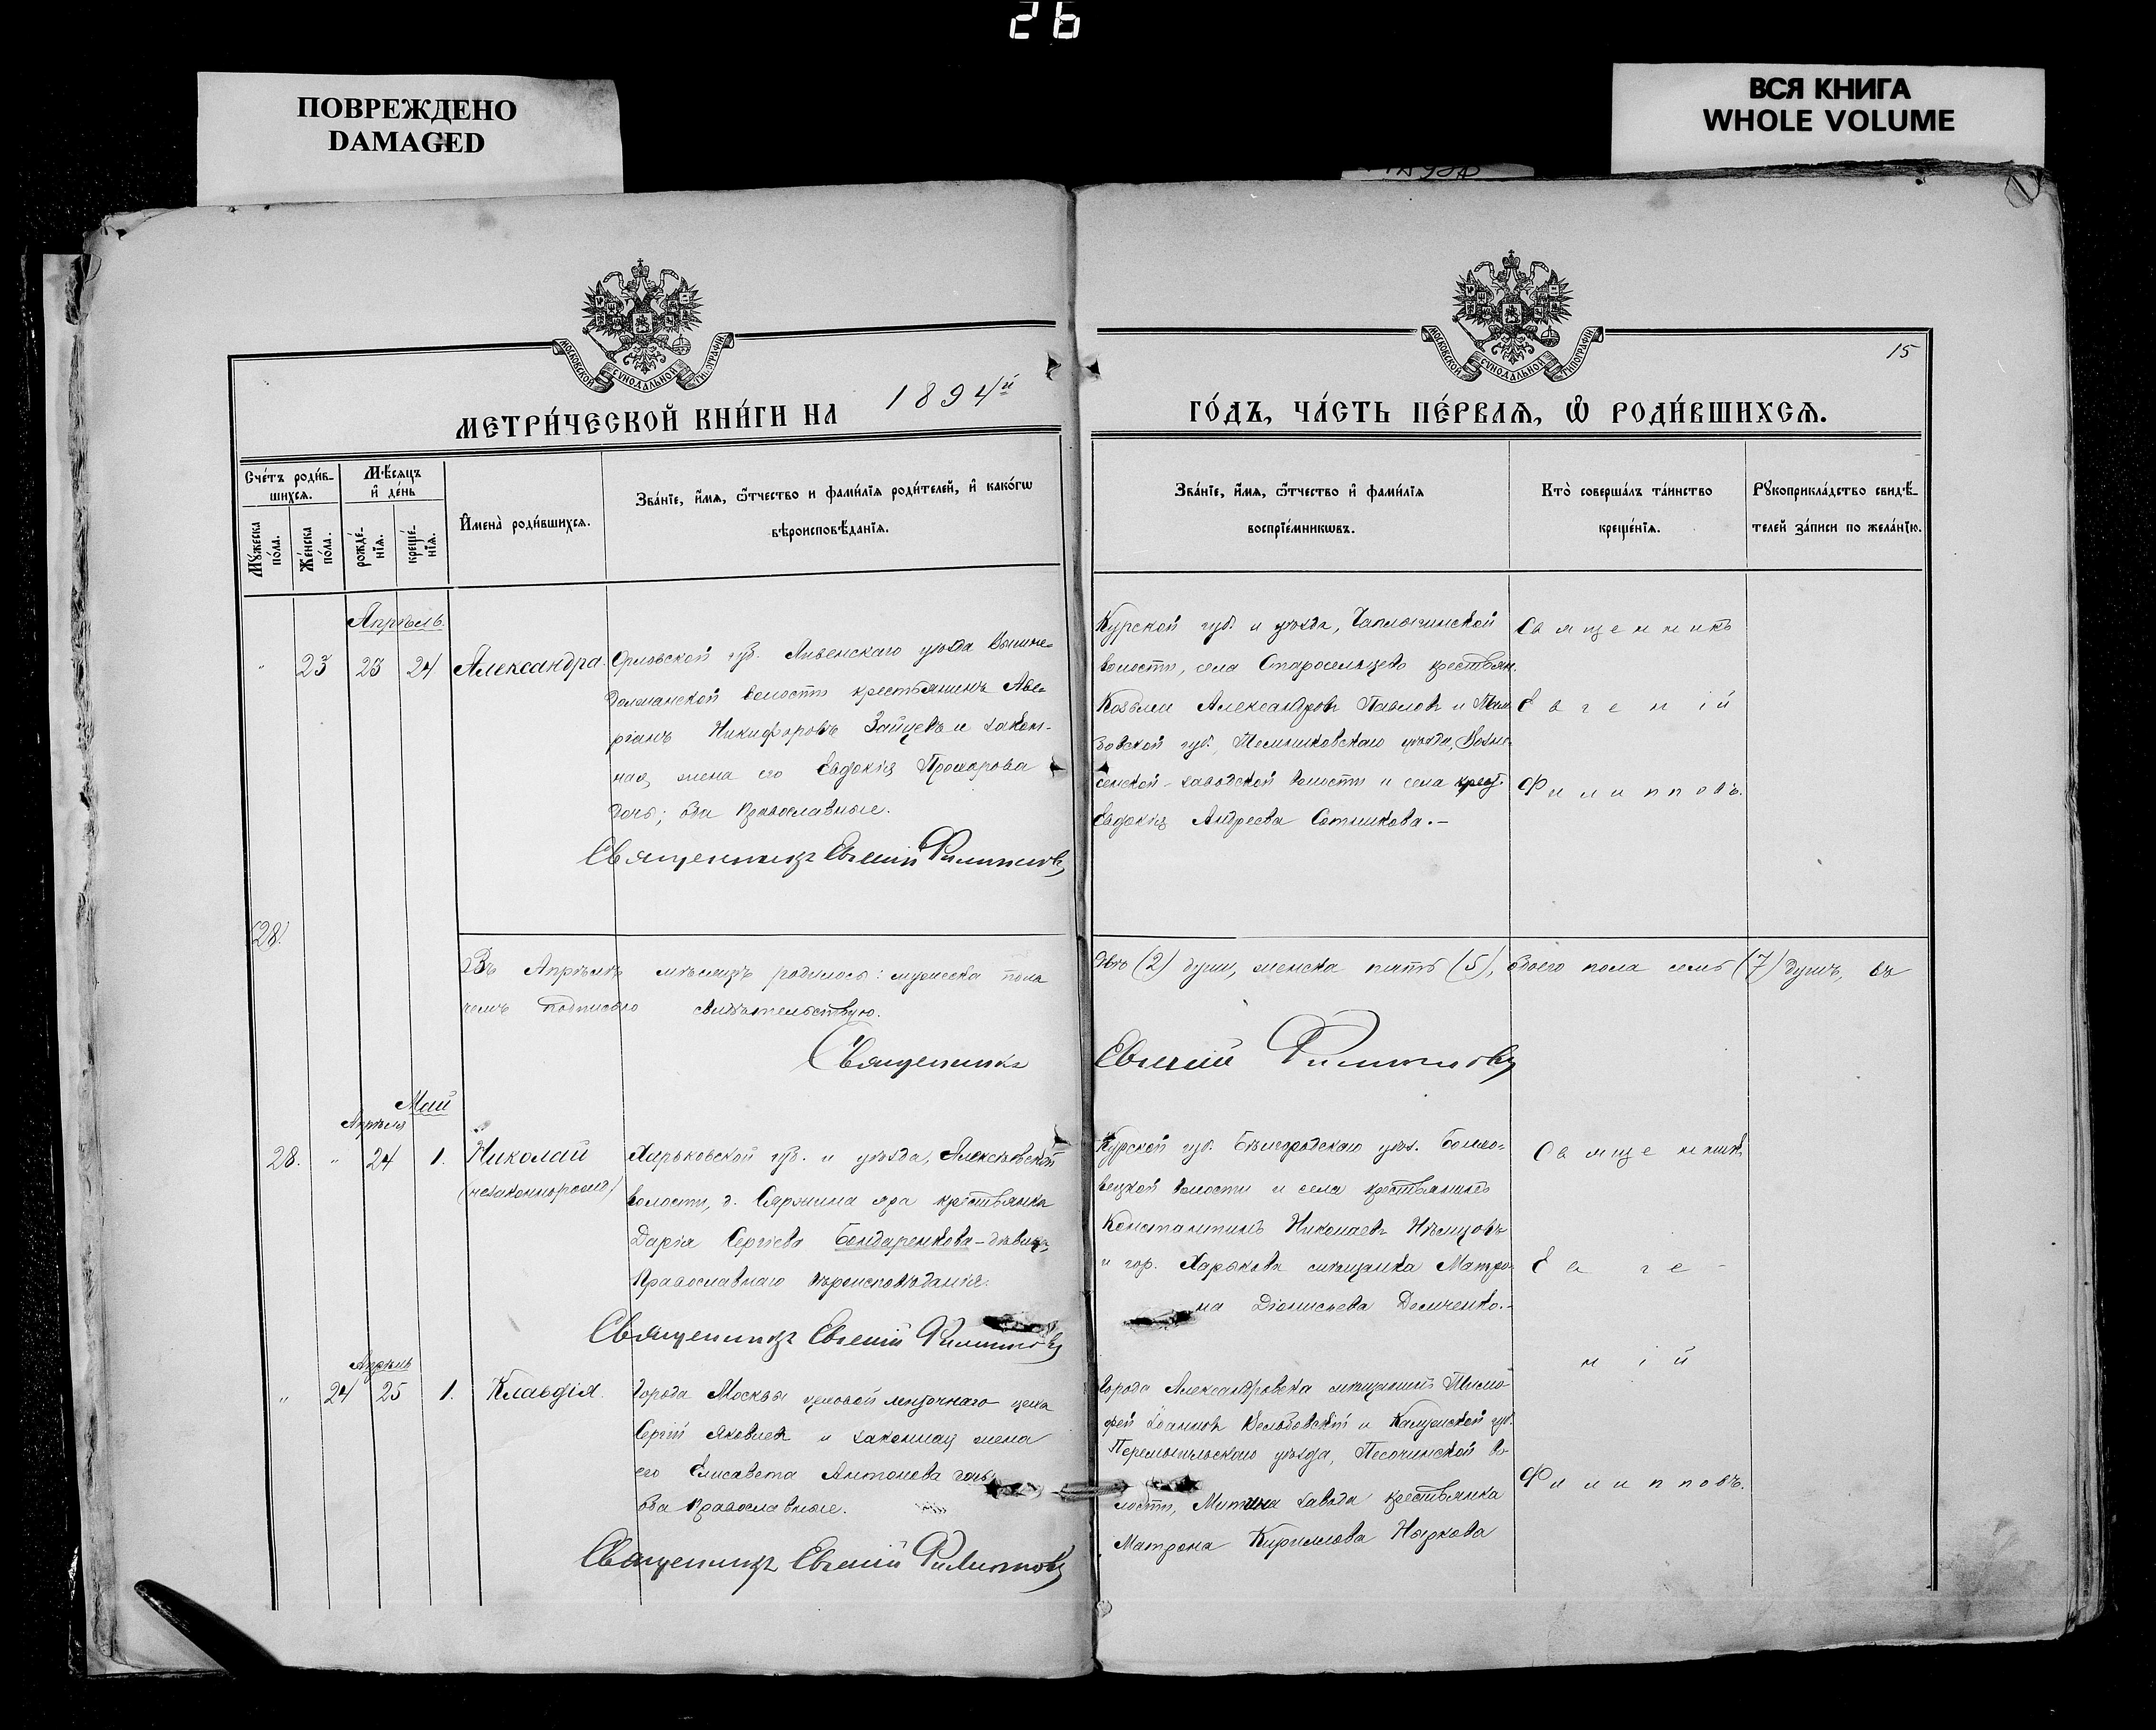 26
ПОВРЕЖДЕНО
DAMAGED
ВСЯ КНИГА
WHOLE VOLUME
15
МОСКОВСКОЙ СѴНОДАЛЬНОЙ ТИПОГРАФИИ
МОСКОВСКОЙ СѴНОДАЛЬНОЙ ТИПОГРАФИИ
МЕТРИ́ЧЕСКОЙ КНИ́ГИ НА 1894й
ГО́ДЪ, ЧА́СТЬ ПЕ́РВАѦ, Ѽ РОДИ́ВШИХСѦ.
Сче́тъ роди́в-
шихсѧ.
Мꙋ́жеска
по́ла.
Же́нска
по́ла.
Мѣ́сѧцъ
и҆ де́нь
рожде́-
нїѧ.
креще́-
нїѧ.
И҆мена̀ роди́вшихсѧ.
Зва́нїе, и҆́мѧ, ѻ҆́тчество и фами́лїѧ роди́телей, и҆ како́гѡ
вѣроисповѣ́данїѧ.
Зва́нїе, и҆́мѧ, ѻ҆́тчество и҆ фами́лїѧ
воспрїе́мникѡвъ.
Кто̀ соверша́лъ та́инство
креще́нїѧ.
Рꙋкоприкла́дство свидѣ́-
телей за́писи по жела́нїю.
Апрѣль.
" 23 23 24 Александра.
Орловской губ. Ливенскаго уѣзда Вышне-
волости крестьянинъ Аве-
ріанъ Никифоровъ Зайцевъ и закон-
ная жена его Евдокія Прохорова
дочь; оба православные.
Священникъ Евгеній Филипповъ
Курской губ. и уѣзда, Чаплыгинской
волости, села Старосельцево крестьян.
Козьма Александровъ Павловъ и Там-
бовской губ., Темниковскаго уѣзда, Возне-
сенской-заводской волости и села крест.
Евдокія Андреева Сотникова.–
Священникъ
Евгеній
Филипповъ.
28.
Въ Апрѣлѣ мѣсяцѣ родилось: мужеска пола
двѣ (2) души, женска пять (5), обоего пола семь (7) душъ, въ
чемъ подписью свидѣтельствую.
Священникъ
Евгеній Филипповъ
Май
Апрѣля
28. " 24 1. Николай
(незаконнорожд)
Харьковской губ. и уѣзда, Алексѣевской
волости, д. яра крестьянка
Дарія Сергіева Бондаренкова – дѣвица,
Православнаго вѣроисповѣданія.
Священникъ Евгеній Филипповъ
Курской губ. Бѣлгородскаго уѣз. Болхо-
вецкой волости и села крестьянинъ
Константинъ Николаевъ Нѣмцовъ
и гор. Харькова мѣщанка Матро-
на Діонисьева Демченко.–
Священникъ
Евге-
ній
Филипповъ.
Апрѣль
" 24 25 1. Клавдія.
Города Москвы цеховой цеха
Сергій Яковлевъ и законная жена
его Елисавета Антонова дочь,
оба православные.
Священникъ Евгеній Филипповъ
Города Александровска мѣщанинъ Тимо-
фей Іоанновъ и Калужской губ.
Перемышльскаго уѣзда, Песочинской во-
лости, Митина завода крестьянка
Матрона Кириллова